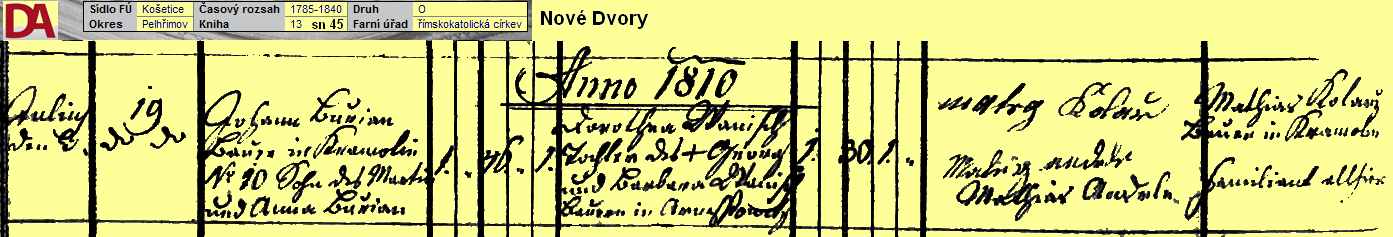 DA
Sídlo FÚ Košetice Časový rozsah 1785-1840 Druh O
Okres Pelhřimov Kniha 13 sn 45 Farní úřad římskokatolická církev
Nové Dvory
Anno 1810
Julius
den 2.
19
Johann Burian
Bauer in Kramolin
N 10 Sohn des Martin
und Anna Burian
1. 1.
Dorothea
Tochter des + Georg
und Barbara
Bauern in
1. 30. 1.
Kolarz
Mathias Andrle
Mathias Kolarz
Bauer in Kramolin
Familiant